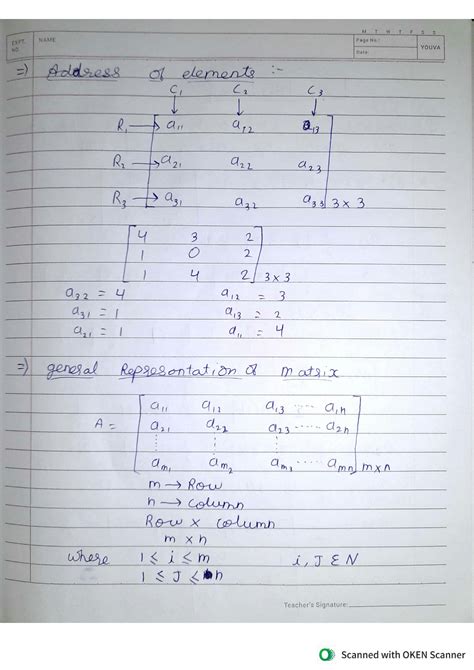 M T W T F S S
EXPT. NO. NAME Page No.: YOUVA
Date:
=) Address of elements :-
C1 C2 C3
↓ ↓ ↓
R1 → a11 a12 a13
R2 → a21 a22 a23
R3 → a31 a32 a33 3 x 3
4 3 2
1 0 2
1 4 2 3 x 3
a32 = 4 a12 = 3
a31 = 1 a13 = 2
a21 = 1 a11 = 4
=) general Represontation of matrix
a11 a12 a13 ..... a1n
A = a21 a22 a23 ..... a2n
⋮ ⋮
am1 am2 am3 ..... amn mxn
m → Row
n → column
Row x column
m x n
where 1 ≤ i ≤ m i, J ∈ N
1 ≤ J ≤ n
Teacher's Signature:
Scanned with OKEN Scanner